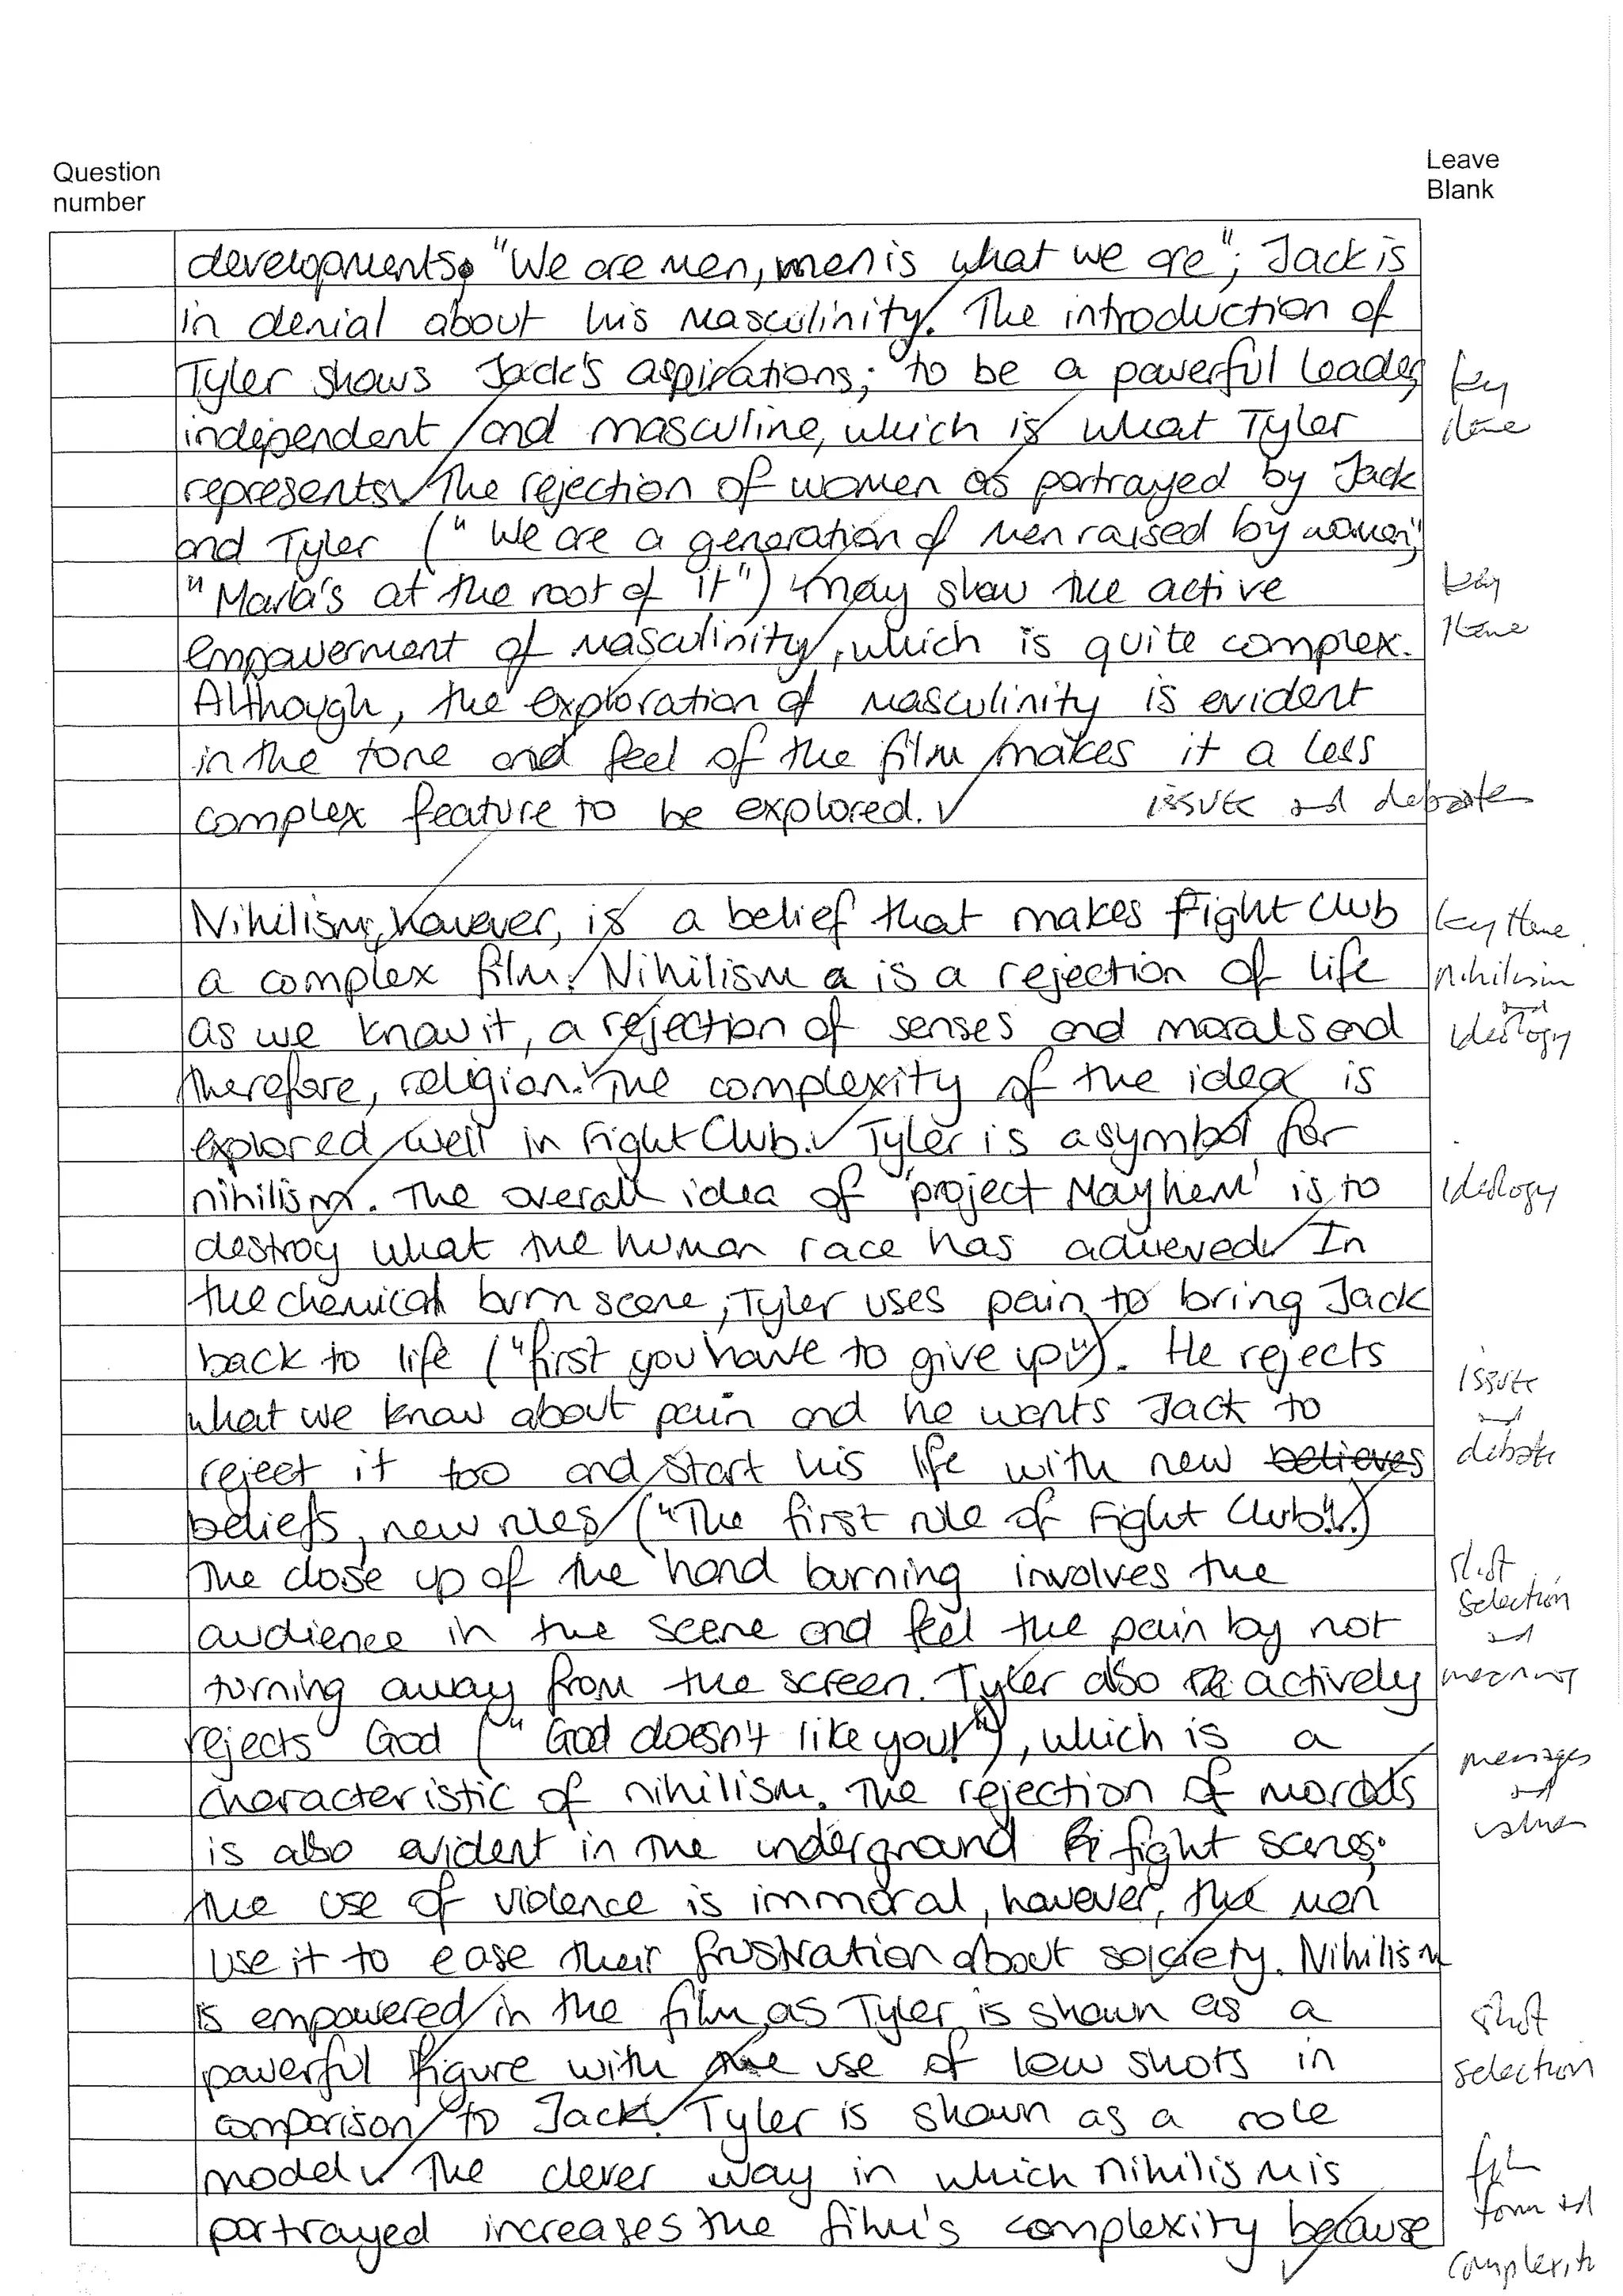 Question
number
Leave
Blank
developments. "We are men, men is what we are"; Jack is
in denial about his masculinity. The introduction of
Tyler shows Jack's aspirations; to be a powerful leader,
independent and masculine, which is what Tyler
represents. The rejection of women as portrayed by Jack
and Tyler ("We are a generation of men raised by women",
"Marla's at the root of it") may show the active
empowerment of masculinity, which is quite complex.
Although, the exploration of masculinity is evident
in the tone and feel of the film makes it a less
complex feature to be explored.
Nihilism, however, is a belief that makes Fight Club
a complex film. Nihilism a is a rejection of life
as we know it, a rejection of senses and morals and
therefore, religion. The complexity of the idea is
explored well in Fight Club. Tyler is a symbol for
nihilism. The overall idea of 'project Mayhem' is to
destroy what the human race has achieved. In
the chemical burn scene, Tyler uses pain to bring Jack
back to life ("first you have to give up"). He rejects
what we know about pain and he wants Jack to
reject it too and start his life with new believes
beliefs, new rules ("The first rule of Fight Club"..)
The close up of the hand burning involves the
audience in the scene and feel the pain by not
turning away from the screen. Tyler also actively
rejects God ("God doesn't like you!"), which is a
characteristic of nihilism. The rejection of morals
is also evident in the underground fight scenes;
the use of violence is immoral, however, the men
use it to ease their frustration about society. Nihilism
is empowered in the film, as Tyler is shown as a
powerful figure with the use of low shots in
comparison to Jack. Tyler is shown as a role
model. The clever way in which nihilism is
portrayed increases the film's complexity because
key
theme
key
theme
issue and debate
key theme
nihilism
and
ideology
ideology
issue
and
debate
shot
selection
and
meaning
messages
and
values
shot
selection
film
form and
complexity